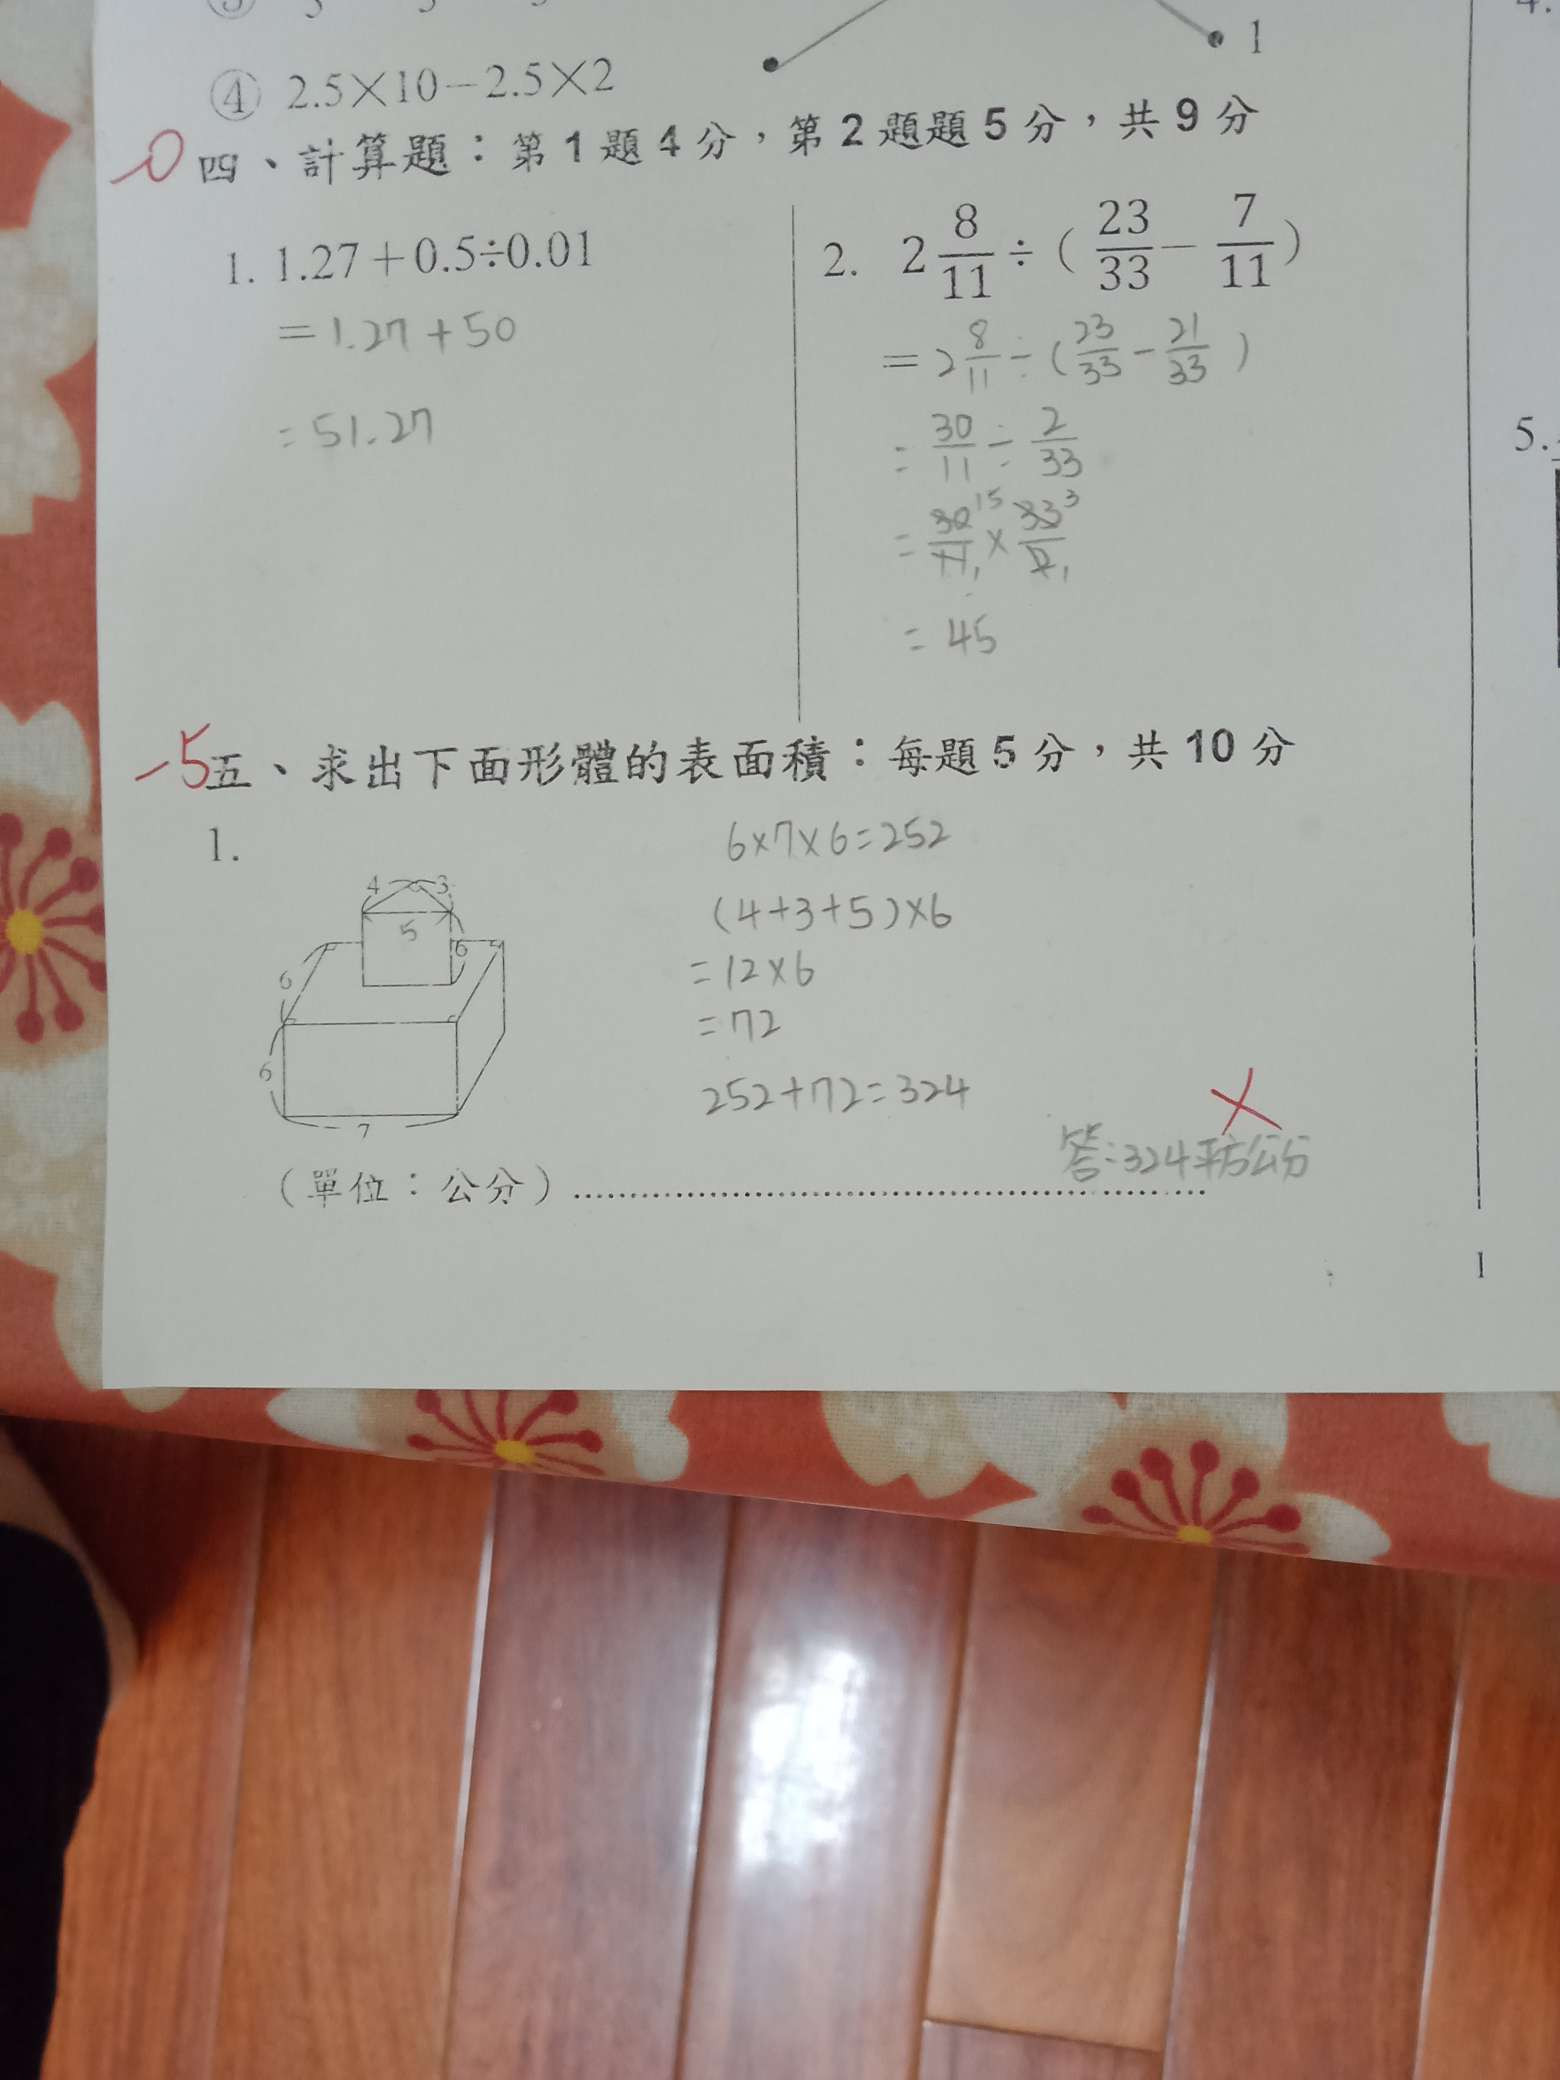 ④ 2.5×10－2.5×2
1
-0 四、計算題：第1題4分，第2題題5分，共9分
1. 1.27＋0.5÷0.01
=1.27+50
=51.27
2. 2 8/11 ÷ ( 23/33 － 7/11 )
=2 8/11 ÷ ( 23/33 - 21/33 )
= 30/11 ÷ 2/33
= 30/11 15 1 × 33/2 3 1
= 45
-5 五、求出下面形體的表面積：每題5分，共10分
1.
4 3
5
6
6
6
7
6×7×6=252
(4+3+5)×6
=12×6
=72
252+72=324
答:324平方公分
（單位：公分）
5.
1